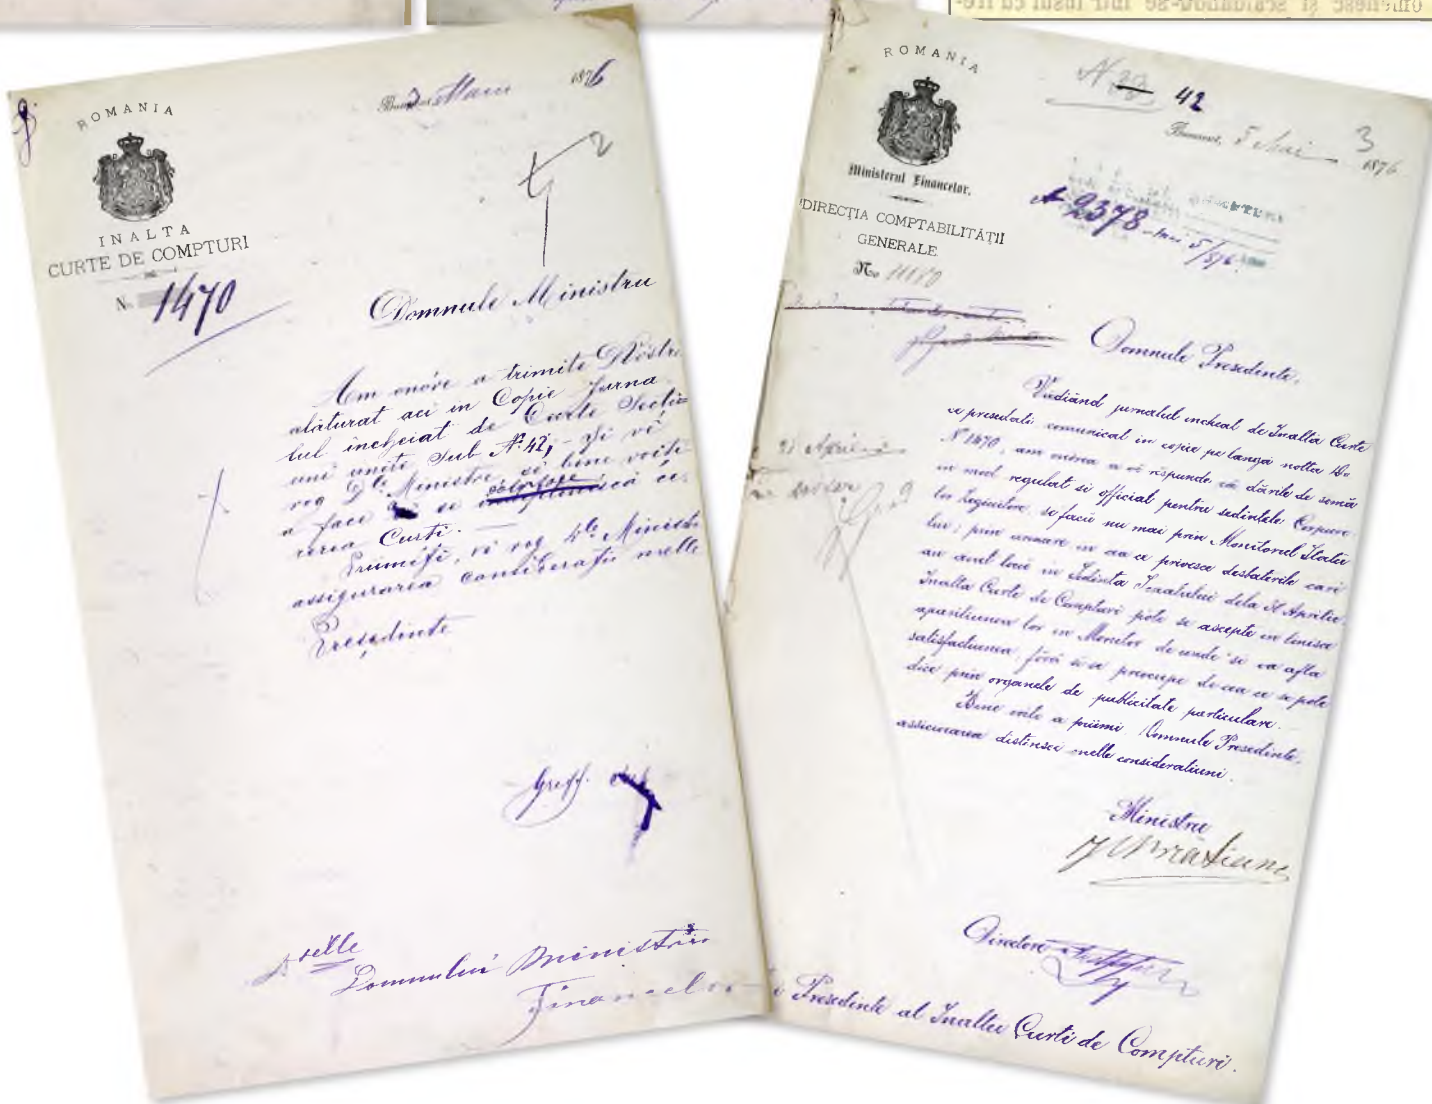 ROMANIA
INALTA
CURTE DE COMPTURI
No 1470
3 Maiu 1876
Domnule Ministru
Am onóre a trimite Dvóstre
alăturat aci in Copie Jurna
lul incheiat de Curte Sectiu
uni unite Sub No 42, şi vĕ
rog Dle Ministru să bine voiti
a face se că ce
rerea Curti.
Primiţi, vĕ rog Dle Ministru
assigurarea consideraţii melle
Preşedinte
Greff.
Domnului Ministru
Financelor
ROMANIA
Ministerul Financelor.
DIRECŢIA COMPTABILITĂŢII
GENERALE
No 11180
42
Bucuresci, 5 Mai 1876
3
2378 5/876
Domnule Presedinte,
Vediând jurnalul incheat de Inalta Curte
ce presedati comunicat in copie pe langa notta
No 1470, am onórea a vĕ rĕspunde că dările de sémă
in mod regulat si official pentru sedintele Corpuri
lor Legiuitore, se facu nu mai prin Monitorul Statu
lui; prin urmare in cea ce privesce desbaterile cari
au avut locu in Sedinta Senatului dela 21 Aprilie,
Inalta Curte de Compturi póte se ascepte in liniste
aparitiunea lor in Monitor de unde 'si va afla
satisfactiunea, fără să se preocupe de cea ce se póte
dice prin organele de publicitate particulare.
Bine voiti a priimi, Domnule Presedinte,
assicurarea distinsei melle consideratiuni.
Ministru
21 Aprilie
Directore
Presedinte al Inaltei Curti de Compturi.